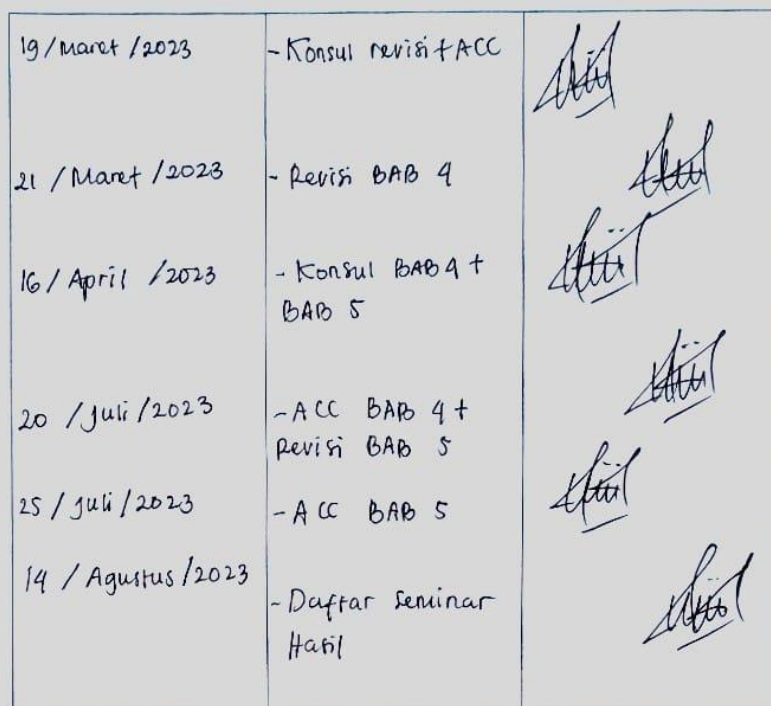 19/Maret/2023 - Konsul revisi + ACC
21 / Maret / 2023 - Revisi BAB 4
16 / April / 2023 - Konsul BAB 4 +
BAB 5
20 / Juli / 2023 - ACC BAB 4 +
Revisi BAB 5
25 / Juli / 2023 - ACC BAB 5
14 / Agustus / 2023
- Daftar Seminar
Hasil